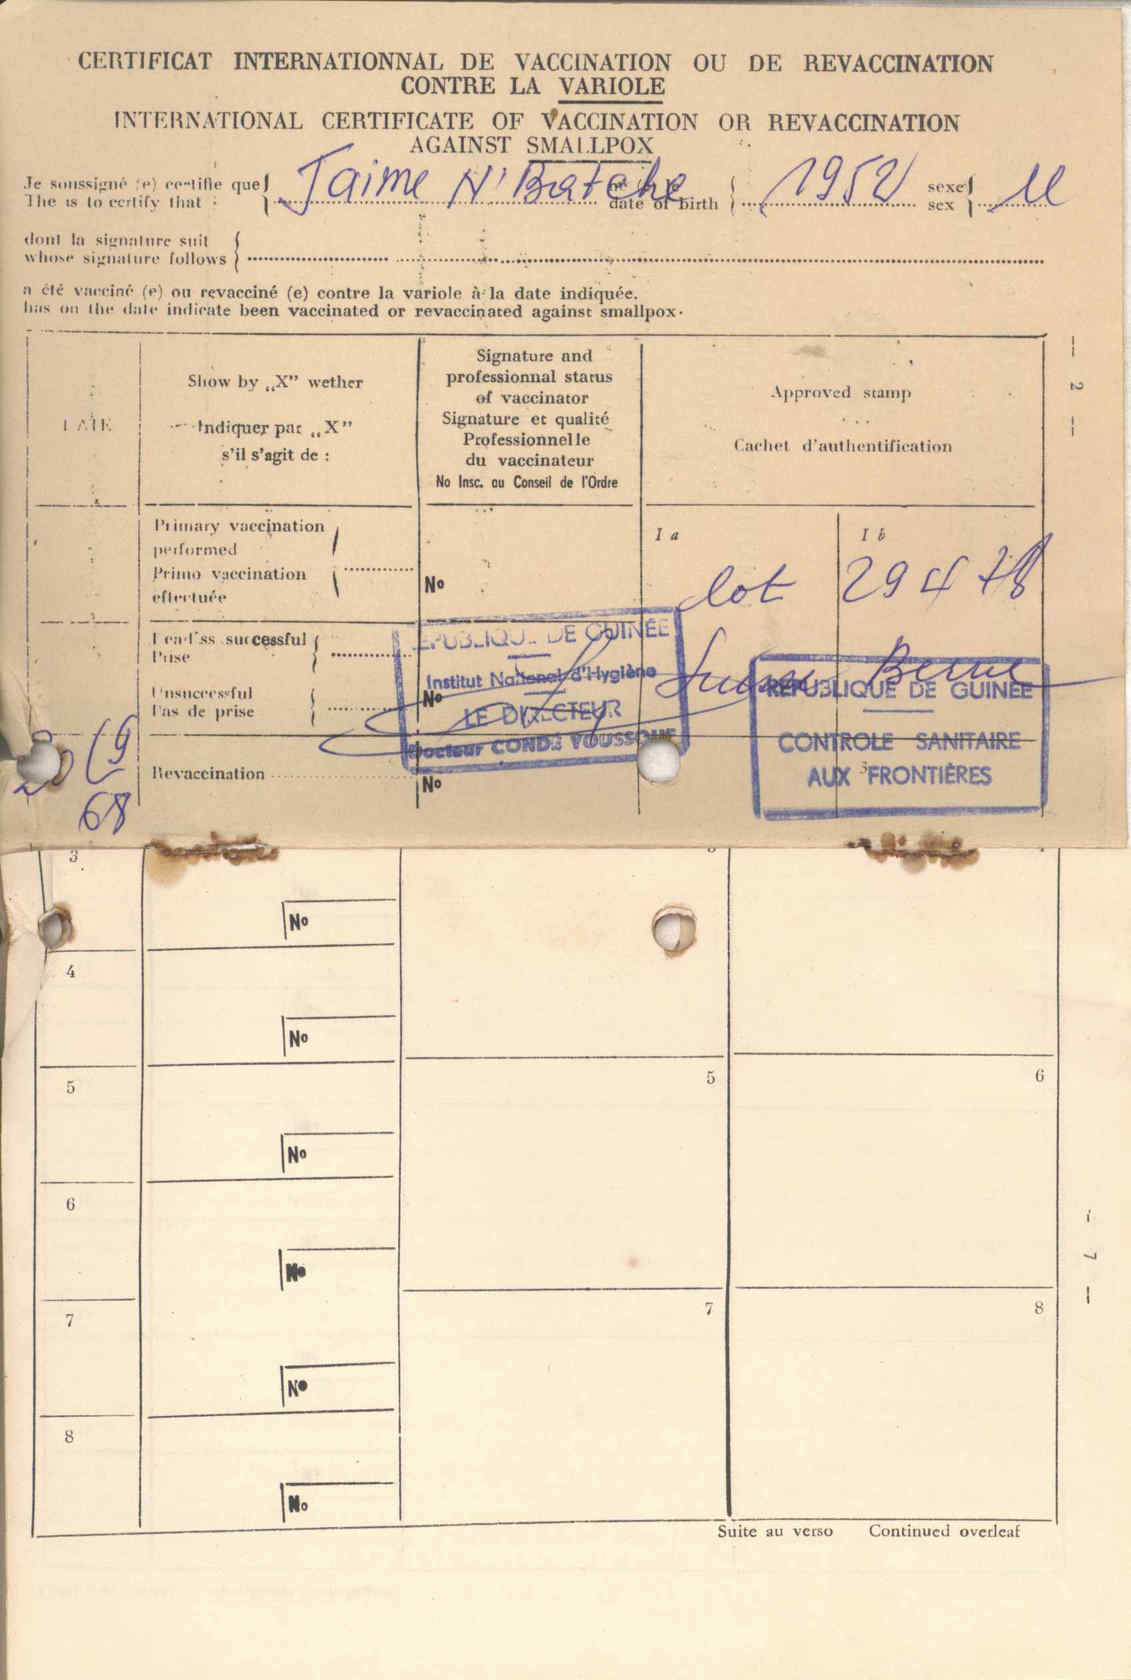 CERTIFICAT INTERNATIONNAL DE VACCINATION OU DE REVACCINATION
CONTRE LA VARIOLE
INTERNATIONAL CERTIFICATE OF VACCINATION OR REVACCINATION
AGAINST SMALLPOX
Je soussigné (e) certifie que
The is to certify that :
Jaime N'Batche
date of birth
1952
sexe
sex
M
dont la signature suit
whose signature follows
a été vacciné (e) ou revacciné (e) contre la variole à la date indiquée.
has on the date indicate been vaccinated or revaccinated against smallpox.
DATE
Show by „X” wether
Indiquer par „X”
s'il s'agit de :
Signature and
professionnal status
of vaccinator
Signature et qualité
Professionnelle
du vaccinateur
No Insc. au Conseil de l'Ordre
Approved stamp
Cachet d'authentification
— 2 —
Primary vaccination
performed
Primo vaccination
effectuée
No
I a
I b
lot 29478
Suisse Berne
successful
Prise
Unsuccessful
Pas de prise
No
REPUBLIQUE DE GUINÉE
Institut National d'Hygiène
LE DIRECTEUR
Docteur CONDÉ YOUSSOUF
REPUBLIQUE DE GUINÉE
CONTROLE SANITAIRE
AUX FRONTIÈRES
3
Revaccination
No
9
68
3
No
4
No
5
No
5
6
6
No
7
No
7
8
8
No
— 7 —
Suite au verso Continued overleaf